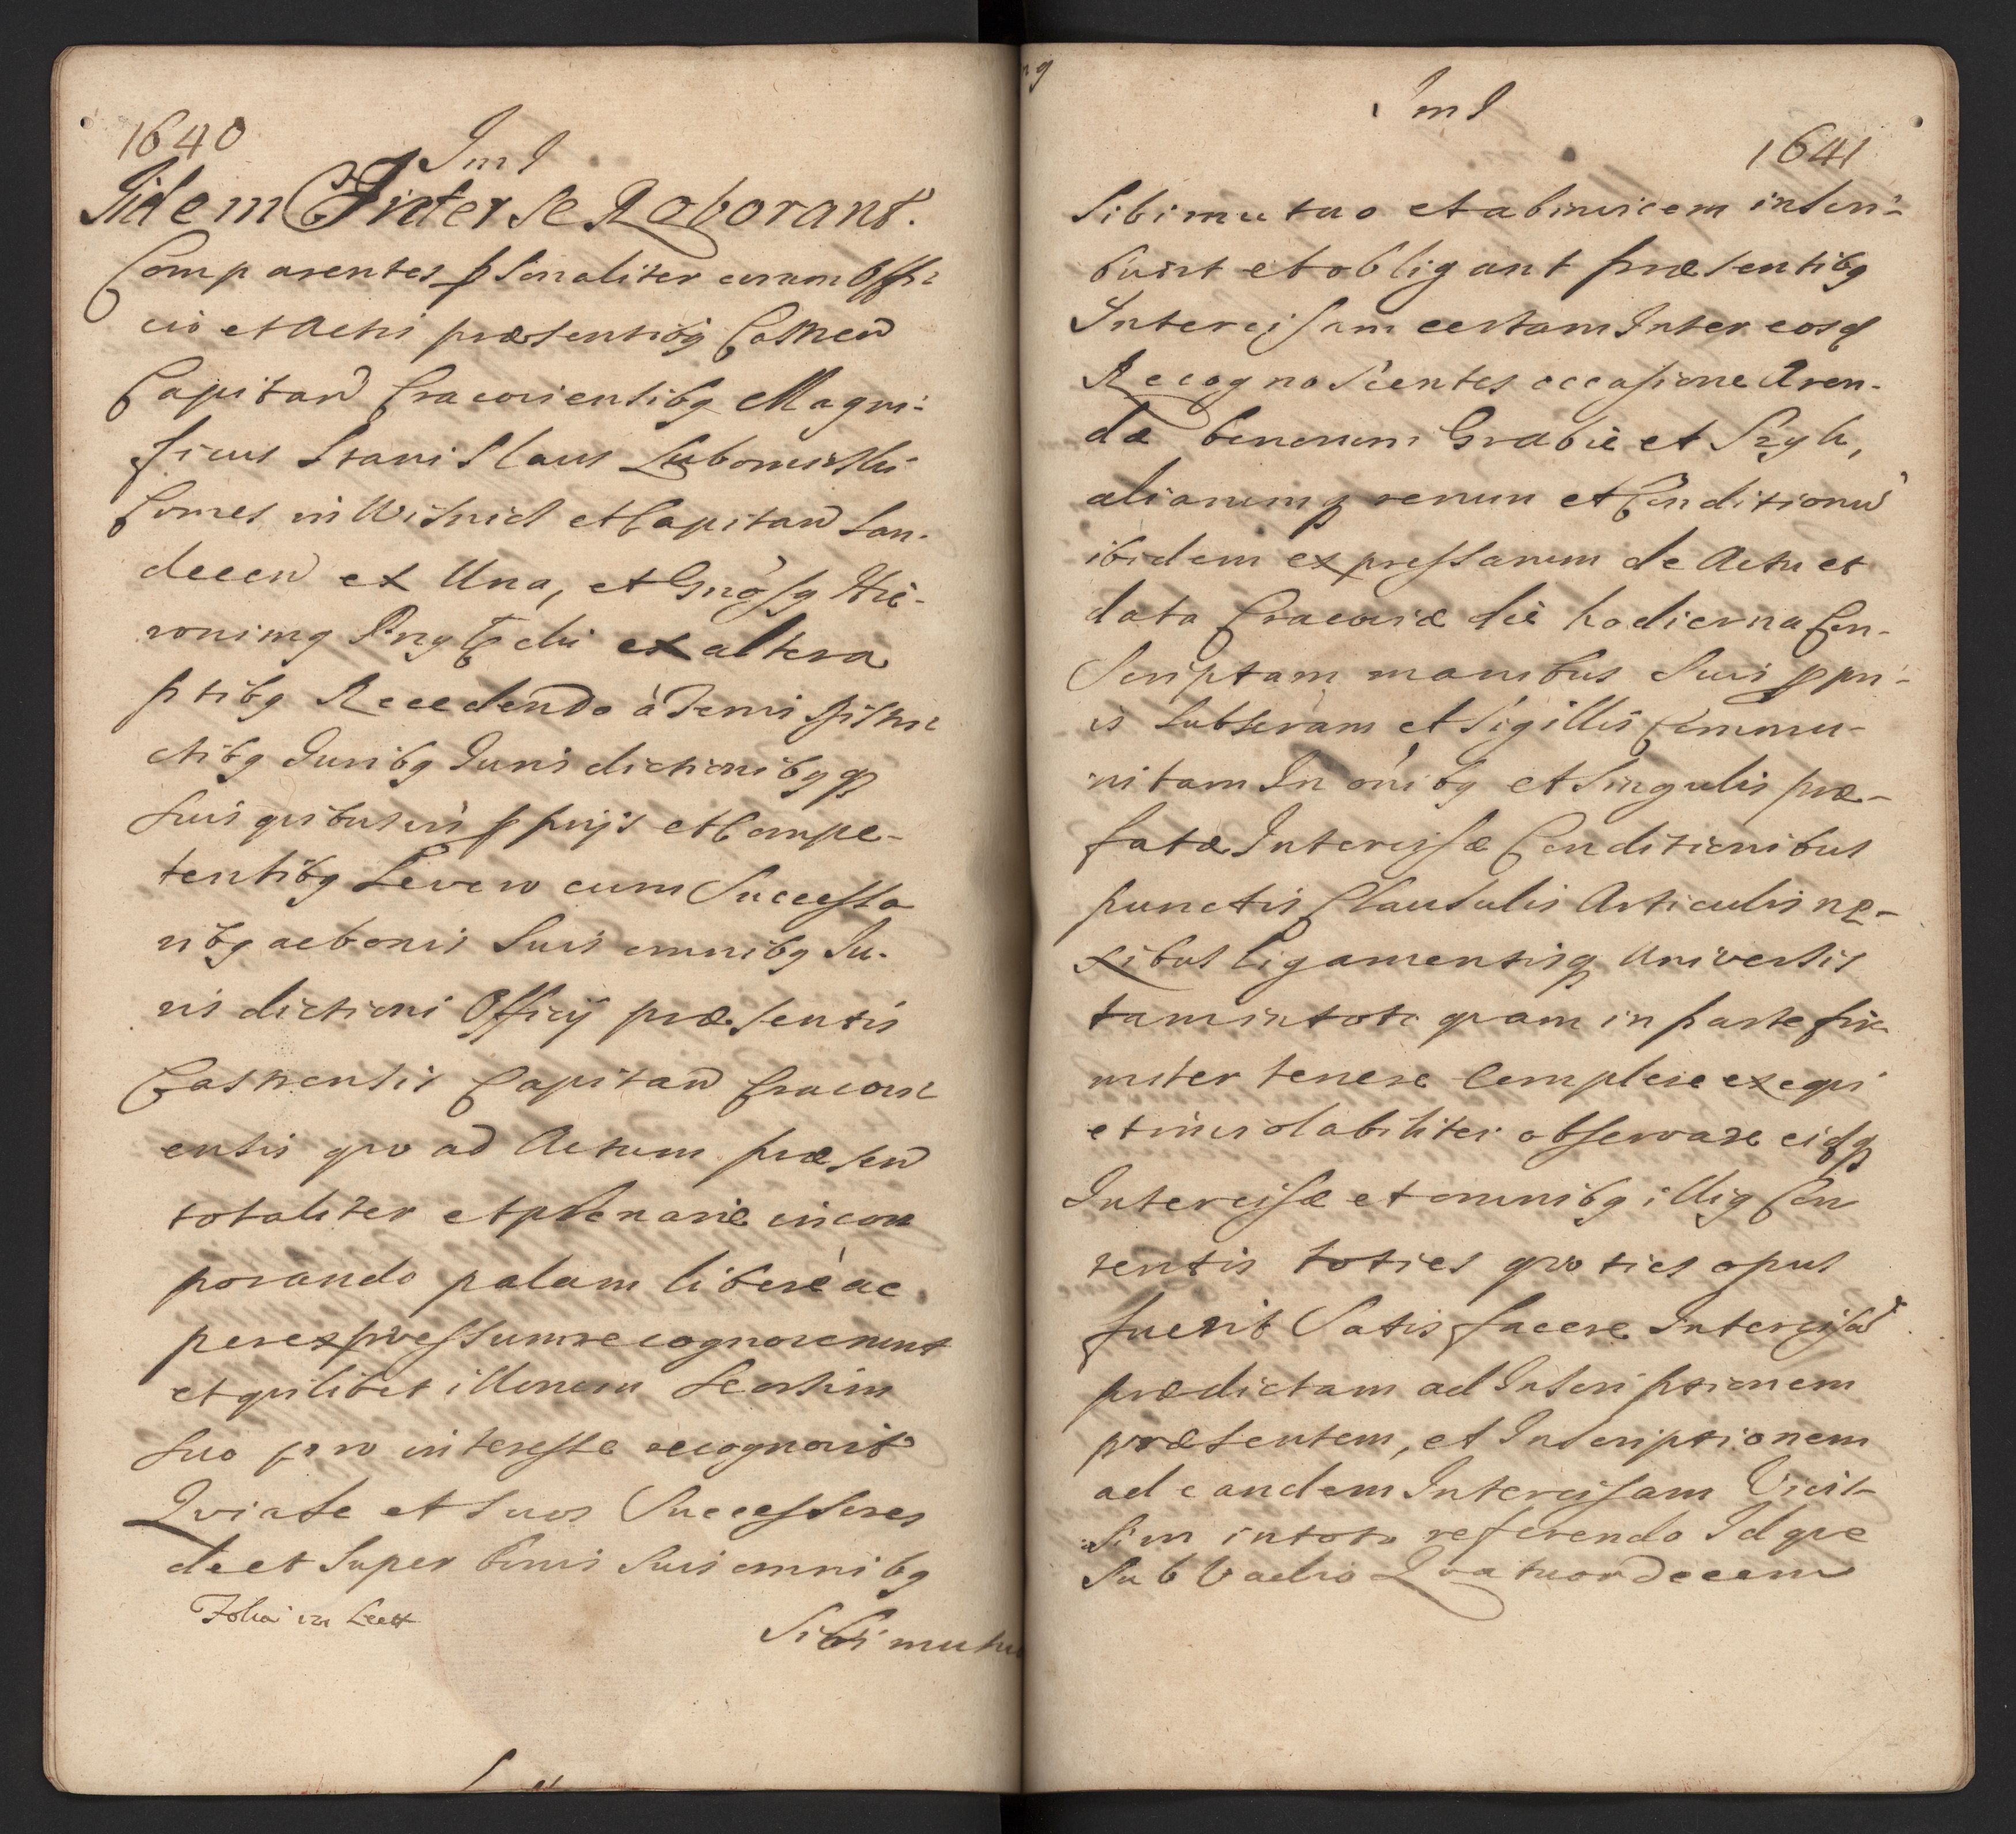 1640
Im I
Iidem Inter se Roborant.
Comparentes psonaliter coram Offi-
cio et Actis præsentibg Castren
Capitan Cracoviensibg Magni-
ficus Stanislaus Lubomirski
Comes in Wisnicz et Capitan San-
decen ex Una, et Gnosg Hie-
ronimg ex altera
ptibg Recedendo à Terris Distri-
ctibg Juribg Jurisdictionibgq
suis quibusvis pprijs et Compe-
tentibg Seve cum Successo
ribg ac bonis Suis omnibg Ju-
risdictioni Officij præsentis
Castrensis Capitan Cracovi-
ensis quo ad Actum præsen
totaliter et plenarie incor
porando palam libere ac
per expressum recognoverunt
et quilibet illorum seorsim
suo pro interesse recognovit
Quia se et suos Successores
de et super bonis suis omnibg
Folia in Sext
Sibi mutuo
Im I
1641
Sibi mutuo et ab invicem inscri-
bunt et obligant præsentibg
Intercisam certam Inter eosd
Recognoscentes occasione Aren-
dæ bonorum Grabie et
aliarumq rerum et Conditionu
ibidem expressarum de Actu et
data Cracoviæ die hodierna Con-
Scriptam manibus Suis ppri-
is Subscram et Sigillis Commu-
nitam In oibg et Singulis præ-
fatæ Intercisæ Conditionibus
punctis Clausulis Articulis ne-
xibus Ligamentisq Universis
tam in toto quam in parte fir-
miter tenere Complere exequi
et inviolabiliter observare eidq
Intercisæ et omnibg illig Con
tentis toties quoties opus
fuerit Satisfacere Intercisa
prædictam ad Inscriptionem
præsentem, et Inscriptionem
ad eandem Intercisam Vicis-
sim in toto referendo Idque
Sub Vadio Quatuordecem